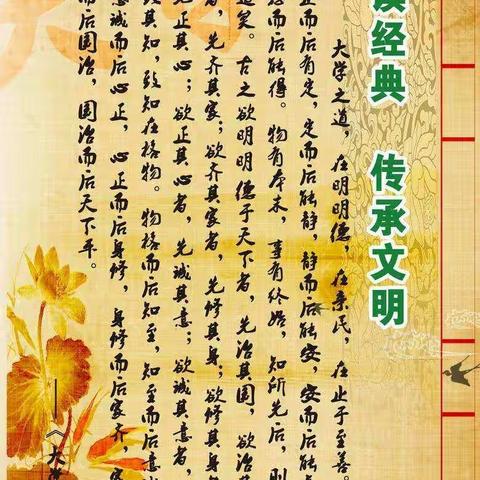 读经典 传承文明
大学之道，在明明德，在亲民，在止于至善。
止而后有定，定而后能静，静而后能安，安而后能
而后能得。物有本末，事有终始，知所先后，则
道矣。古之欲明明德于天下者，先治其国，欲治
者，先齐其家；欲齐其家者，先修其身；欲修其身
先正其心；欲正其心者，先诚其意；欲诚其意者，
致其知，致知在格物。物格而后知至，知至而后意
意诚而后心正，心正而后身修，身修而后家齐，家
而后国治，国治而后天下平。
——《大学